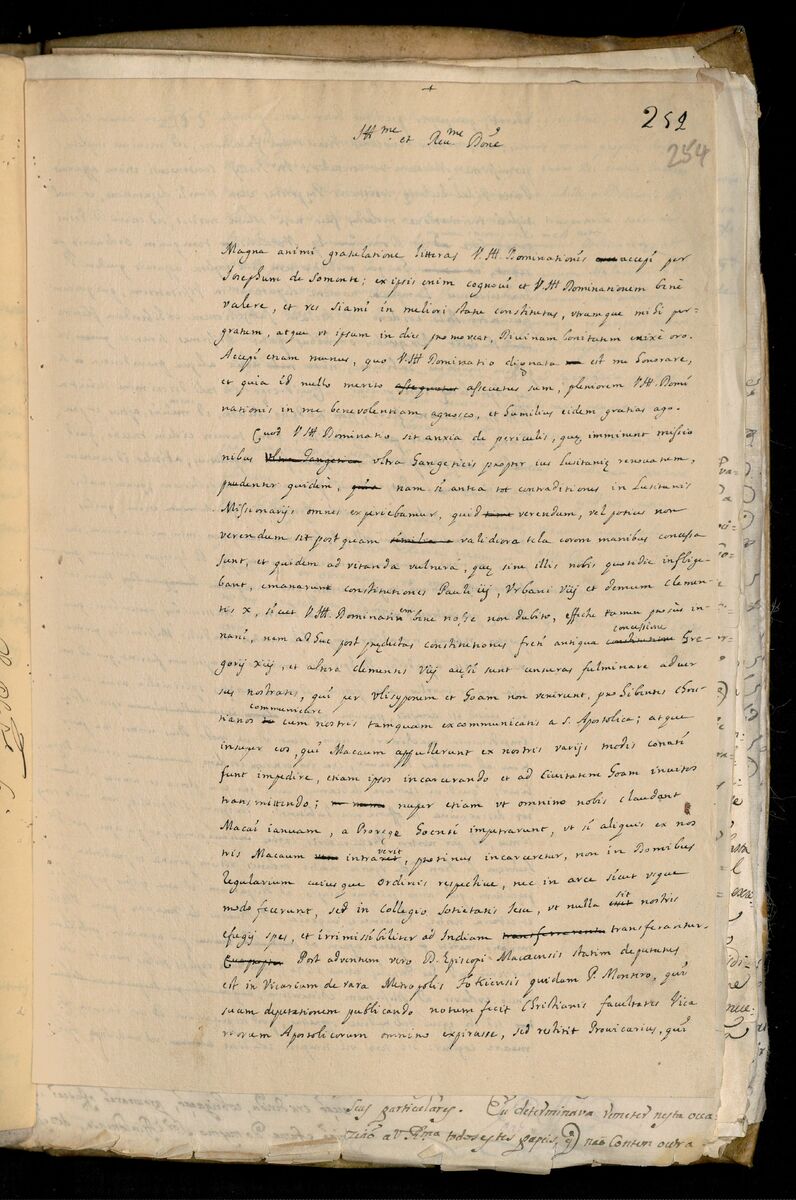 +
252
254
Ill.me et Reu.me Dñe
Magna animi gratulatione litteras V. Ill. Dominationis accepi per
Josephum de Somonte; ex ipsis enim cognovi et V. Ill Dominationem benè
valere, et res Siami in meliori statu constitutas, utrumque mihi per-
gratum, atque ut ipsum in dies promoveat, Divinam bonitatem enixè oro.
Accepi etiam munus, quo V Ill Dominatio dignata est me honorare,
et quia id nullo merito assequutus assecutus sum, pleniorem V Ill. Domi
nationis in me benevolentiam agnosco, et humilius eidem gratias ago.
Quod V Ill Dominatio sit anxia de periculis, quę imminent missio
nibus ultra Gangeticis propter ius Lusitanię renovatum,
prudenter quidem, quia nam si antea tot contradictiones in Lusitanis
Missionarijs omnes experiebamur, quid verendum, vel potius non
verendum sit postquam similia validiora tela eorum manibus concessa
sunt, et quidem ad vetanda vulnera, quę sine illis nobis quotidie inflige-
bant, emanarunt constitutiones Pauli iij, Urbani Viij et demum Clemen-
tis X, sicut V Ill. Dominationem bene nosse non dubito, effectu tamen prorsùs in-
nani, nam adhuc post prędictas constitutiones freti antiqua concessione Gre-
gorij xiij, et altera Clementis Viij ausi sunt censuras fulminare adver
sus nostrates, qui per Ulisyponem et Goam non venirunt, prohibentes Chris-
tianos communicare cum nostris tamquam excommunicatis a S. Apostolica; atque
insuper eos, qui Macaum appullerunt ex nostris varijs modis conati
sunt impedire, etiam ipsos incarcerando et ad Civitatem Goam invitos
transmittendo; nuper etiam ut omnino nobis claudant
Macai ianuam, a Prorege Goensi impetrarunt, ut si aliquis ex nos
tris Macaum intraverit, protinus incarceretur, non in Domibus
Regularium cuiusque Ordinis respective, nec in arce sicut usque
modo fecerunt, sed in Collegio Societatis Iesu, ut nulla sit nostris
efugij spes, et irrimissibiliter ad Indiam transferantur.
Post adventum vero D. Episcopi Macaensis statim deputatus
est in Vicarium de vara Metropolis Fokiensis quidam P. Monteiro, qui
suam deputationem publicando notum fecit Christianis facultates Vica
riorum Apostolicorum omnino expirasse, sed restitit Provicarius, qui
seus particulares. Eu determinava remeter nesta occa
zião a V. Rma todos estes papeis, q nao Contem outra